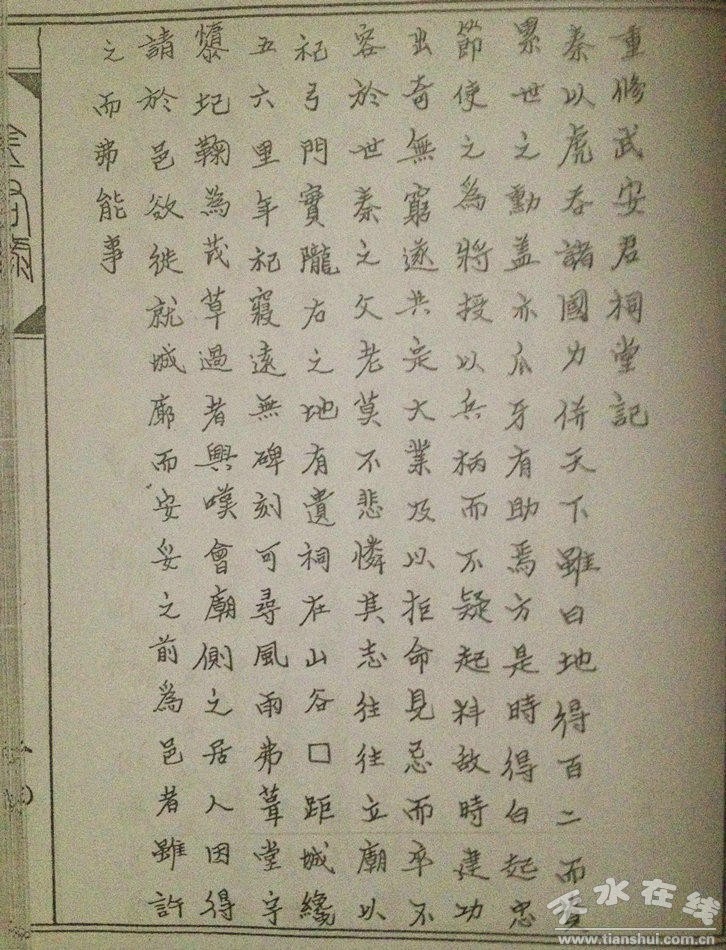 重修武安君祠堂記
秦以虎吞諸國力併天下雖曰地得百二而
累世之勳盖亦爪牙有助焉方是時得白起忠
節使之為將授以兵柄而不疑起料敌時建功
出奇無窮遂共定大業及以拒命見忌而卒不
容於世秦之父老莫不悲憐其志往往立廟以
祀弓門寶隴右之地有遺祠在山谷口距城纔
五六里年祀寢遠無碑刻可尋風雨弗葺堂宇
圮鞠為茂草過者興嘆會廟側之居人因得
請於邑欲徙就城廓而安妥之前為邑者雖許
之而弗能事
天水在线
www.tianshui.com.cn